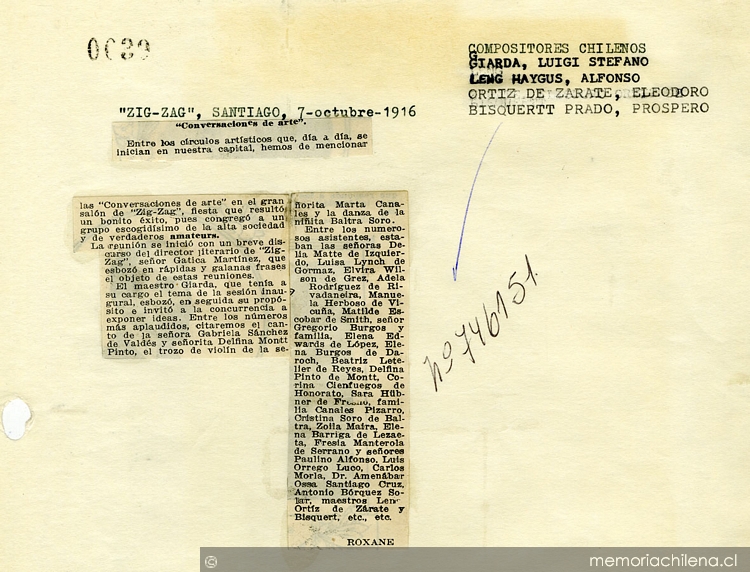 0639
COMPOSITORES CHILENOS
GIARDA, LUIGI STEFANO
LENG HAYGUS, ALFONSO
ORTIZ DE ZARATE, ELEODORO
BISQUERTT PRADO, PROSPERO
"ZIG-ZAG", SANTIAGO, 7-octubre-1916
"Conversaciones de arte".
Entre los círculos artísticos que, día a día, se
inician en nuestra capital, hemos de mencionar
las "Conversaciones de arte" en el gran
salón de "Zig-Zag", fiesta que resultó
un bonito éxito, pues congregó a un
grupo escogidísimo de la alta sociedad
y de verdaderos amateurs.
La reunión se inició con un breve dis-
curso del director literario de "Zig-
Zag", señor Gatica Martínez, que
esbozó en rápidas y galanas frases
el objeto de estas reuniones.
El maestro Giarda, que tenía a
su cargo el tema de la sesión inau-
gural, esbozó, en seguida su propó-
sito e invitó a la concurrencia a
exponer ideas. Entre los números
más aplaudidos, citaremos el can-
to de la señora Gabriela Sánchez
de Valdés y señorita Delfina Montt
Pinto, el trozo de violín de la se-
ñorita Marta Cana-
les y la danza de la
niñita Baltra Soro.
Entre los numero-
sos asistentes, esta-
ban las señoras De-
lia Matte de Izquier-
do, Luisa Lynch de
Gormaz, Elvira Wil-
son de Grez, Adela
Rodríguez de Ri-
vadaneira, Manue-
la Herboso de Vi-
cuña, Matilde Es-
cobar de Smith, señor
Gregorio Burgos y
familia, Elena Ed-
wards de López, Ele-
na Burgos de Da-
roch, Beatriz Lete-
lier de Reyes, Delfina
Pinto de Montt, Co-
rina Cienfuegos de
Honorato, Sara Hüb-
ner de Fresno, fami-
lia Canales Pizarro,
Cristina Soro de Bal-
tra, Zoila Maira, Ele-
na Barriga de Lezae-
ta, Fresia Manterola
de Serrano y señores
Paulino Alfonso, Luis
Orrego Luco, Carlos
Morla, Dr. Amenábar
Ossa Santiago Cruz,
Antonio Bórquez So-
lar, maestros Len
Ortíz de Zárate y
Bisquert, etc., etc.
ROXANE
Nº 746151.
© memoriachilena.cl